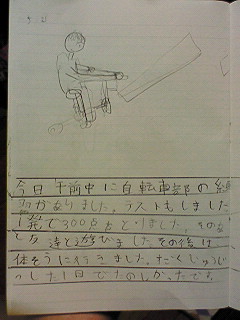 今日午前中に自転車部の練
習がありました。テストもしました
1発で300点をとりました。その
とち達と遊びました。その後は
体そうに行きました。すごくじゅうじ
つした1日でたのしかったです